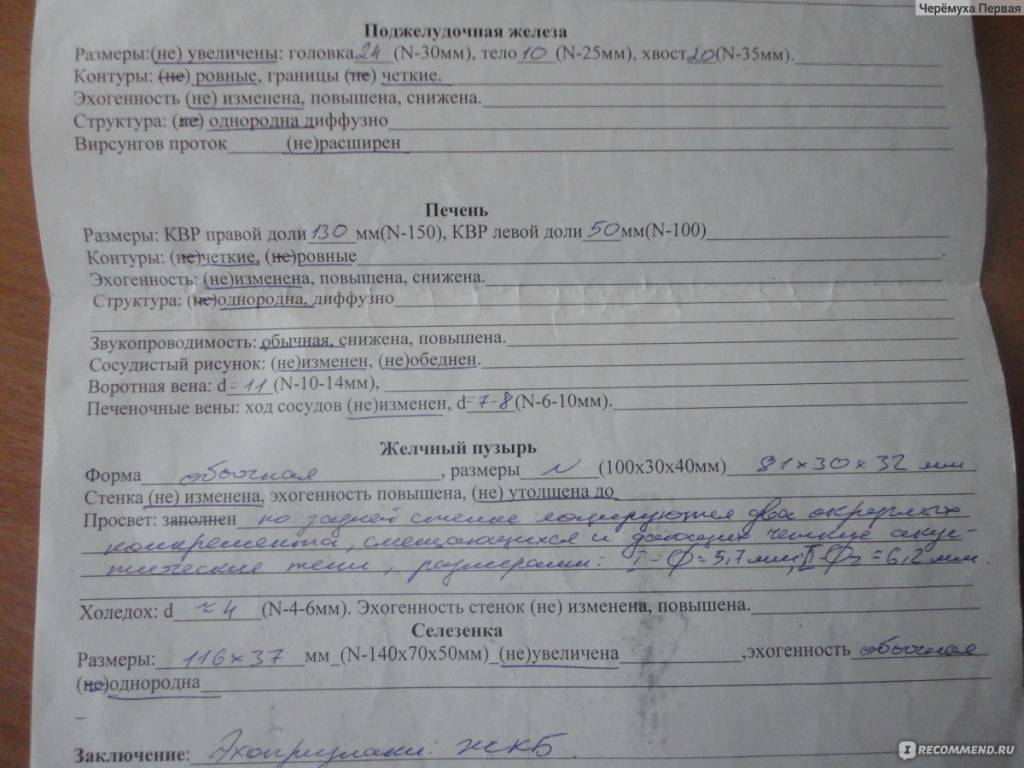 Черёмуха Первая
Поджелудочная железа
Размеры:(не) увеличены: головка 24 (N-30мм), тело 10 (N-25мм), хвост 20 (N-35мм).
Контуры: (не) ровные, границы (не) четкие.
Эхогенность (не) изменена, повышена, снижена.
Структура: (не) однородна диффузно
Вирсунгов проток (не)расширен
Печень
Размеры: КВР правой доли 130 мм(N-150), КВР левой доли 50 мм(N-100)
Контуры: (не)четкие, (не)ровные
Эхогенность: (не)изменена, повышена, снижена.
Структура: (не)однородна, диффузно
Звукопроводимость: обычная, снижена, повышена.
Сосудистый рисунок: (не)изменен, (не)обеднен.
Воротная вена: d = 11 (N-10-14мм),
Печеночные вены: ход сосудов (не)изменен, d= 7-8 (N-6-10мм).
Желчный пузырь
Форма обычная, размеры N (100х30х40мм) 81х30х32 мм
Стенка (не) изменена, эхогенность повышена, (не) утолщена до
Просвет: заполнен по задней стенке лоцируются два округлых
конкремента, смещающихся и дающих четкие акус-
тические тени, размерами: I - Ф = 5,7 мм, II - Ф2 = 6,2 мм.
Холедох: d ≈ 4 (N-4-6мм). Эхогенность стенок (не) изменена, повышена.
Селезенка
Размеры: 116х37 мм (N-140х70х50мм) (не)увеличена, эхогенность обычная
(не)однородна
Заключение: Эхопризнаки: ЖКБ.
IRECOMMEND.RU